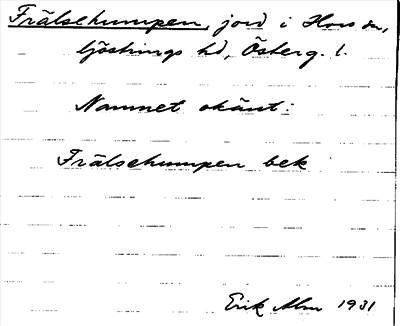 Frälsehumpen, jord i Hors sn,
Göstrings hd, Österg. l.
Namnet okänt:
Frälsehumpen bek
Erik Alm 1931